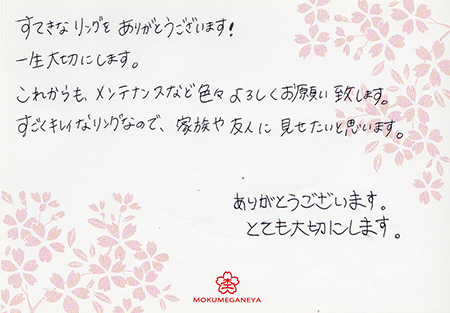 すてきなリングをありがとうございます!
一生大切にします。
これからも、メンテナンスなど色々よろしくお願い致します。
すごくキレイなリングなので、家族や友人に見せたいと思います。
ありがとうございます。
とても大切にします。
MOKUMEGANEYA